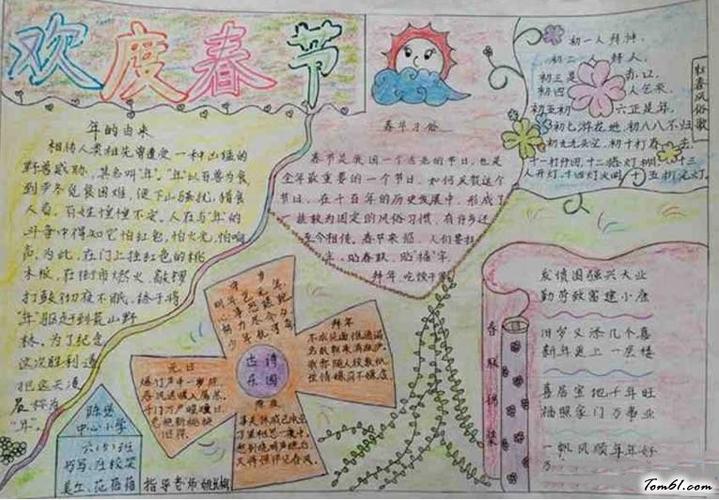 欢度春节
年的由来
相传人类祖先曾遭受一种凶猛的
野兽威胁,其名叫"年"。"年"以百兽为食
到严冬觅食困难,便下山骚扰,猎食
人畜,百姓惶惶不定。人在与"年"的
斗争中得知它怕红色,怕火光,怕响
声,为此,在门上挂红色的桃
木板,在街市燃火,敲锣
打鼓彻夜不眠,终于将
"年"驱赶到荒山野
林。为了纪念
这次胜利,
把这天
"年"。
春节习俗
春节是我国一个古老的节日,也是
全年最重要的一个节日,如何庆贺这个
节日,在千百年的历史发展中,形成了
一些较为固定的风俗习惯,有许多还
至今相传。春节来临,人们要扫
贴春联,贴"福"字,
拜年,吃饺子
初一人拜神,
初二 拜人,
初三是 赤口,
初四 人乞米,
初五初 六正是年,
初七游花地,初八八不归
初九无头空,初十打春
十一打仔回,十二搭灯棚,十三
人开灯,十四灯火明,十五祈元灯
古诗
乐园
守岁
元日
爆竹声中一岁除,
春风送暖入屠苏。
千门万户曈曈日,
总把新桃换
旧符。
拜年
不求见面惟通谒,
名纸朝来满敝庐。
我亦随人投数纸,
世情嫌简不嫌虚。
春联摘录
发愤图强兴大业
勤劳致富建小康
旧岁又添几个喜
新年更上一层楼
喜居宝地千年旺
福照家门万事兴
一帆风顺年年好
中心小学
六(5)班
指导老师
Tom61.com